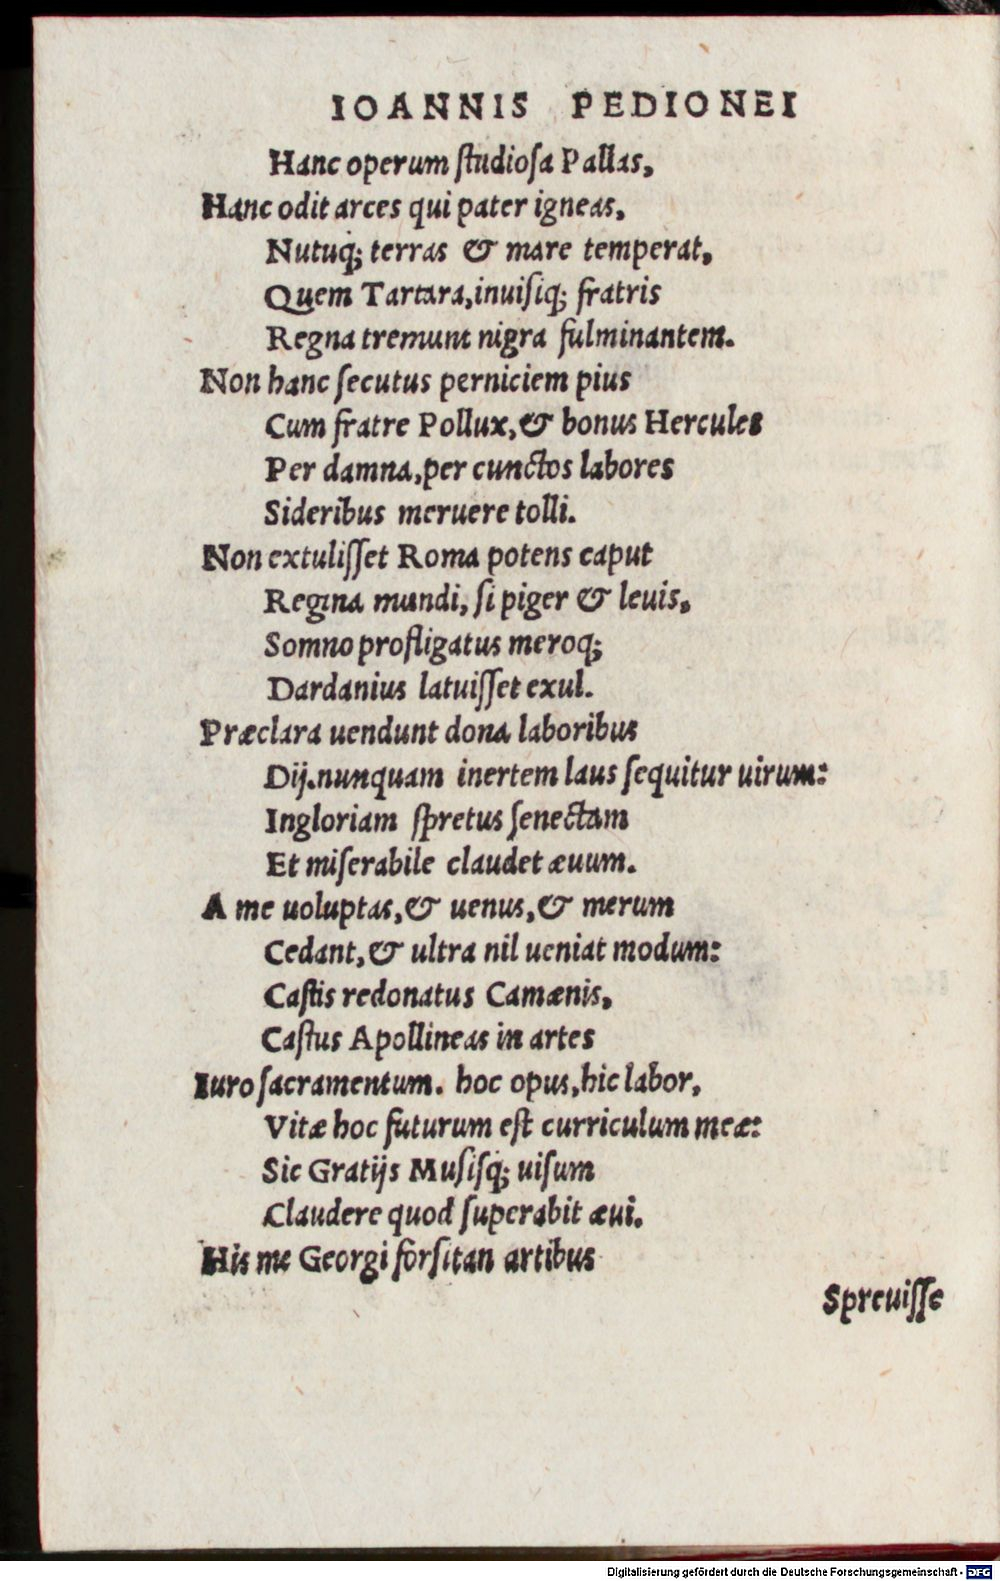 IOANNIS PEDIONEI
Hanc operum ſtudioſa Pallas,
Hanc odit arces qui pater igneas,
Nutuq́; terras & mare temperat,
Quem Tartara,inuiſiq́; fratris
Regna tremunt nigra fulminantem.
Non hanc ſecutus perniciem pius
Cum fratre Pollux,& bonus Hercules
Per damna,per cunctos labores
Sideribus meruere tolli.
Non extuliſſet Roma potens caput
Regina mundi, ſi piger & leuis,
Somno profligatus meroq́;
Dardanius latuiſſet exul.
Præclara uendunt dona laboribus
Dij.nunquam inertem laus ſequitur uirum:
Ingloriam ſpretus ſenectam
Et miſerabile claudet æuum.
A me uoluptas,& uenus,& merum
Cedant,& ultra nil ueniat modum:
Caſtis redonatus Camænis,
Caſtus Apollineas in artes
Iuro ſacramentum. hoc opus,hic labor,
Vitæ hoc futurum eſt curriculum meæ:
Sic Gratijs Muſiſq́; uiſum
Claudere quod ſuperabit æui.
His me Georgi forſitan artibus
Spreuiſſe
Digitalisierung gefördert durch die Deutsche Forschungsgemeinschaft - DFG